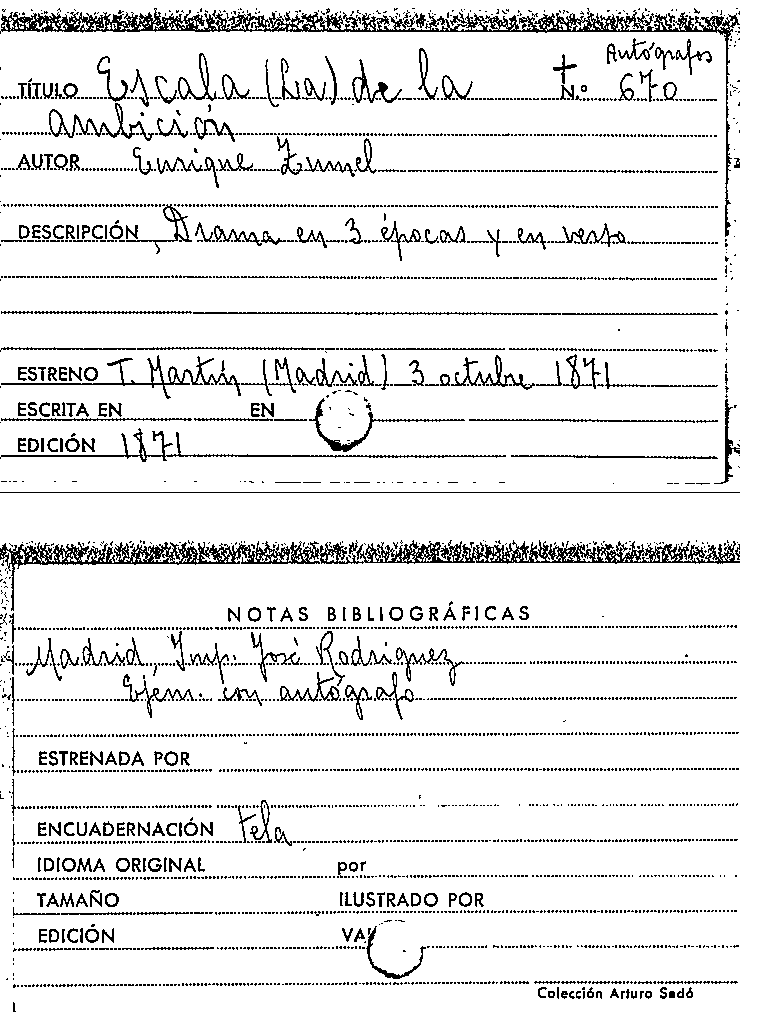 Autógrafos
TÍTULO Escala (La) de la N.º 670
ambición
AUTOR Enrique Zumel
DESCRIPCIÓN, Drama en 3 épocas y en verso
ESTRENO T. Martín (Madrid) 3 octubre 1871
ESCRITA EN EN
EDICIÓN 1871
NOTAS BIBLIOGRÁFICAS
Madrid, Imp. José Rodriguez
Ejem. con autógrafo
ESTRENADA POR
ENCUADERNACIÓN tela
IDIOMA ORIGINAL por
TAMAÑO ILUSTRADO POR
EDICIÓN
Colección Arturo Sedó